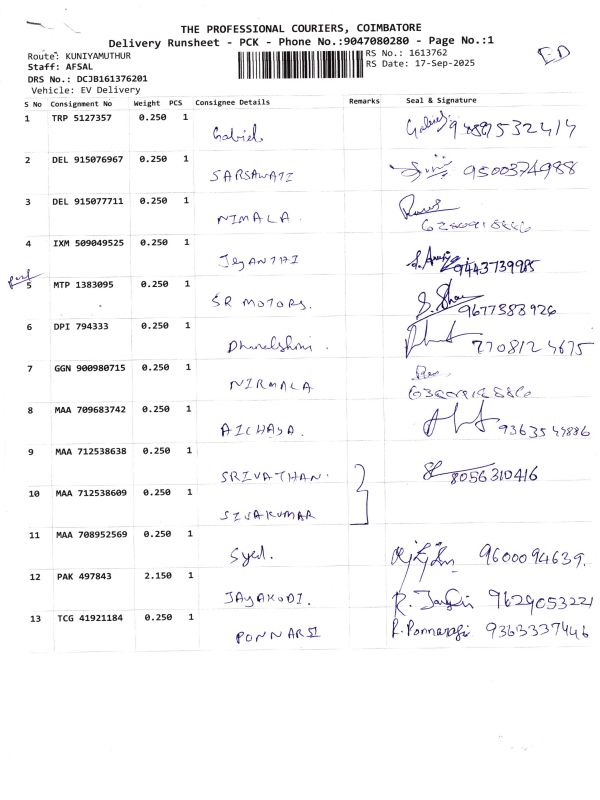 THE PROFESSIONAL COURIERS, COIMBATORE
Delivery Runsheet - PCK - Phone No.:9047080280 - Page No.:1
Route: KUNIYAMUTHUR
RS No.: 1613762
Staff: AFSAL
RS Date: 17-Sep-2025
DRS No.: DCJB161376201
Vehicle: EV Delivery
S No Consignment No Weight PCS Consignee Details Remarks Seal & Signature
1 TRP 5127357 0.250 1
Gabriel
2 DEL 915076967 0.250 1
SARSAWATI 9500374988
3 DEL 915077711 0.250 1
NIMALA.
4 IXM 509049525 0.250 1
JEYANTHI 9443739985
5 MTP 1383095 0.250 1
SR MOTORS. 9677388926
6 DPI 794333 0.250 1
7708124675
7 GGN 900980715 0.250 1
NIRMALA
8 MAA 709683742 0.250 1
AICHASA. 9363549886
9 MAA 712538638 0.250 1
SRIVATHAN. 8056310416
10 MAA 712538609 0.250 1
SIVAKUMAR
11 MAA 708952569 0.250 1
Syed. 9600094639.
12 PAK 497843 2.150 1
JAYAKODI. 9629053221
13 TCG 41921184 0.250 1
PONNARSI R. Ponnarasi 9363337446